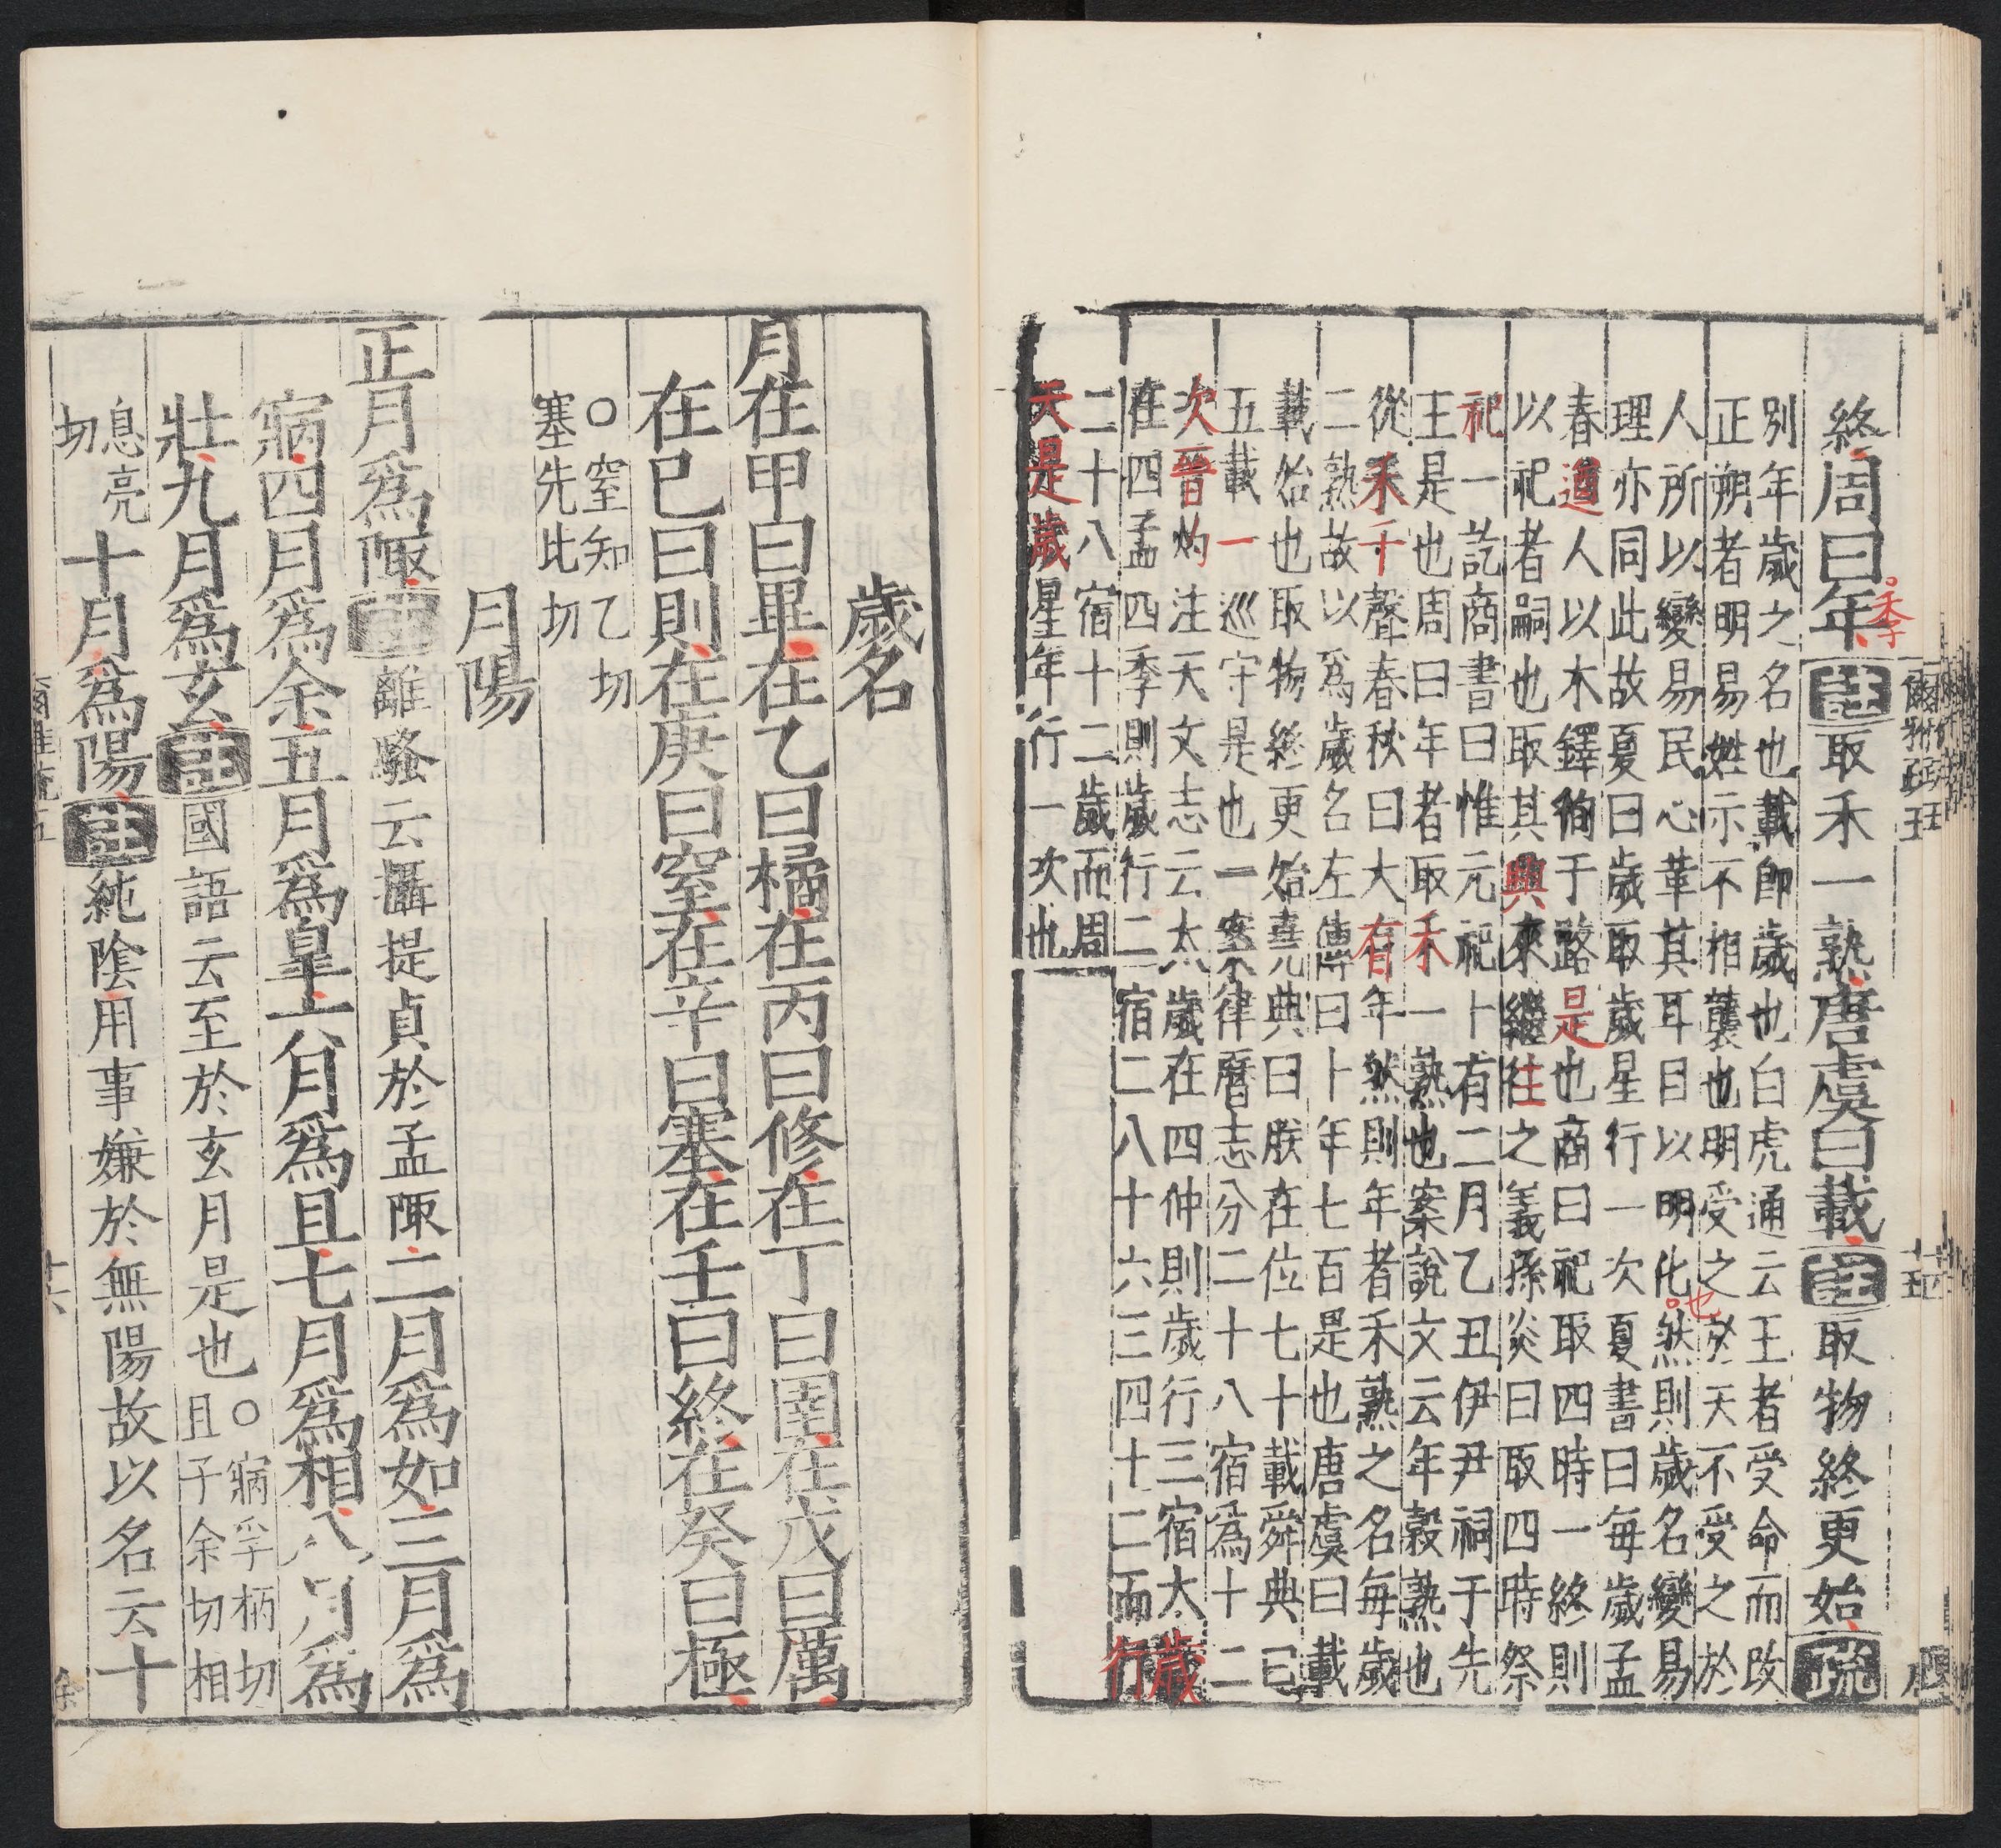 終周曰年註取禾一熟唐虞曰載註取物終更始疏
秊
別年歲之名也載即歲也白虎通云王者受命而改
正朔者明易姓示不相襲也明受之於天不受之於
人所以變易民心革其耳目以明化然則歲名變易
也
理亦同此故夏曰歲取歲星行一次夏書曰每歲孟
春遒人以木鐸徇于路是也商曰祀取四時一終則
以祀者嗣也取其興來繼往之義孫炎曰取四時祭
祀一訖商書曰惟元祀十有二月乙丑伊尹祠于先
王是也周曰年者取禾一熟也案說文云年穀熟也
從禾千聲春秋曰大有年然則年者禾熟之名每歲
二熟故以爲歲名左傳曰卜年七百是也唐虞曰載
載始也取物終更始堯典曰朕在位七十載舜典曰
五載一巡守是也一案律曆志分二十八宿爲十二
次晉灼注天文志云太歲在四仲則歲行三宿太歲
在四孟四季則歲行二宿二八十六三四十二而行
二十八宿十二歲而周
天是歲星年行一次也
歲名
月在甲曰畢在乙曰橘在丙曰修在丁曰圉在戊曰厲
在巳曰則在庚曰窒在辛曰塞在壬曰終在癸曰極
○窒知乙切
塞先比切
月陽
正月爲陬註離騷云攝提貞於孟陬二月爲如三月爲
寎四月爲余五月爲皐六月爲且七月爲相八月爲
壯九月爲玄註國語云至於玄月是也○寎孚柄切
且子余切相
息亮
切
十月爲陽註純陰用事嫌於無陽故以名云十